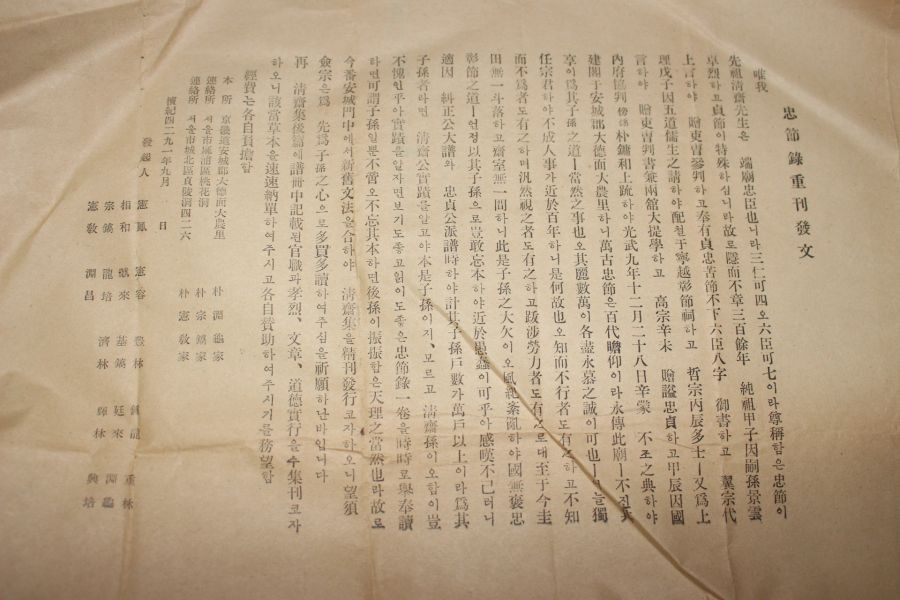 忠節錄重刊發文
唯我
先祖淸齋先生은 端廟忠臣也니라 三仁可四오 六臣可七이라 尊稱함은 忠節이
卓烈하고 貞節이 特殊하심니라 故로 隱而不章三百餘年 純祖甲子因嗣孫景雲
上言하야 贈吏曹參判하고 奉有貞忠苦節不下六臣八字 御書하고 翼宗代
理戊子因五道儒生之請하야 配享于寧越彰節祠하고 哲宗丙辰多士ㅣ又爲上
言하야 贈吏曹判書兼兩館大提學하고 高宗辛未 贈諡忠貞하고 甲辰因國
內府協判 朴鏞和上疏하야 光武九年十二月二十八日辛蒙 不祧之典하야
建閣于安城郡大德面大農里하니 萬古忠節은 百代瞻仰이라 永傳此廟
享이 爲其子孫之道ㅣ當然之事也오 其麗數萬이 各盡永慕之誠이 可也ㅣ
任宗君하야 不成人事가 近於百年하니 是何故也오 知而不行者도 有之하고 不知
而不爲者도 有之하며 汎然視之者도 有之하고 跋涉勞力者도 有之로대 至于今圭
田無一斗落하고 齋室無一間하니 此是子孫之大欠이오 風紀紊亂하야 國無褒忠
彰節之道ㅣ언정 以其子孫으로 豈敢忘本하야 近於愚蠢이 可乎아 感嘆不已러니
適因 糾正公大譜와 忠貞公派譜時하야 計其子孫戶數가 萬戶以上이라 爲其
子孫者라면 淸齋公實蹟을 알고야 本是子孫이지、모르고 淸齋孫이오 함이 豈
不愧인乎아 實蹟을 알자면 보기도 좋고 읽이도 좋은 忠節錄一卷을 時時로 擧奉讀
하면 可謂子孫일뿐不啻오 不忘其本하면 後孫이 振振함은 天理之當然也라 故로
今番安城門中에서 新舊文法을 合하야 淸齋集을 精刊發行코자하오니 望須
僉宗은 爲 先爲子孫之心으로 多買多讀하여주심을 祈願하난바입니다
再 淸齋集後篇에 譜冊中記載된 官職과 孝烈、文章、道德實行을 蒐集刊코자
하오니 該當草本을 速速納單하여주시고 各自贊助하여주시기를 務望함
經費는 各自負擔함
本 所 京畿道安城郡大德面大農里 朴 淵 龜家
連絡所 서울市麻浦區桃花洞 朴 宗 鎬家
連絡所 서울市城北區貞陵洞四二六 朴 憲 敎家
檀紀四二九一年九月 日
發起人
憲鳳 憲容 豊林 鍾龍 重林
相和 號來 基鎬 廷來 淵龜
宗鎬 龍培 濟林 輝林 興培
憲敎 淵昌